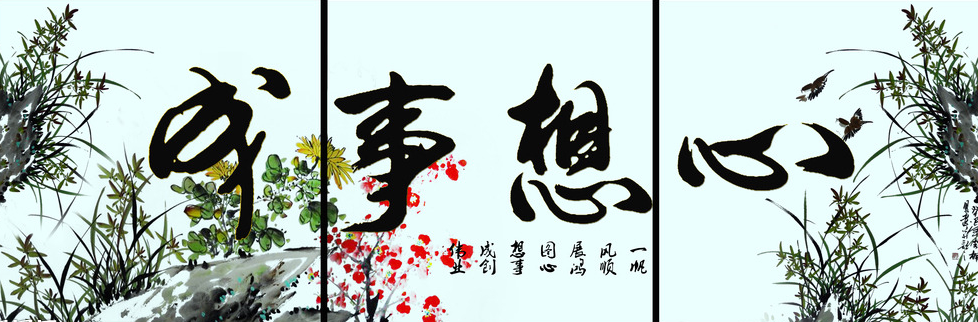 心想事成
一帆
风顺
展鸿
图心
想事
成创
伟业